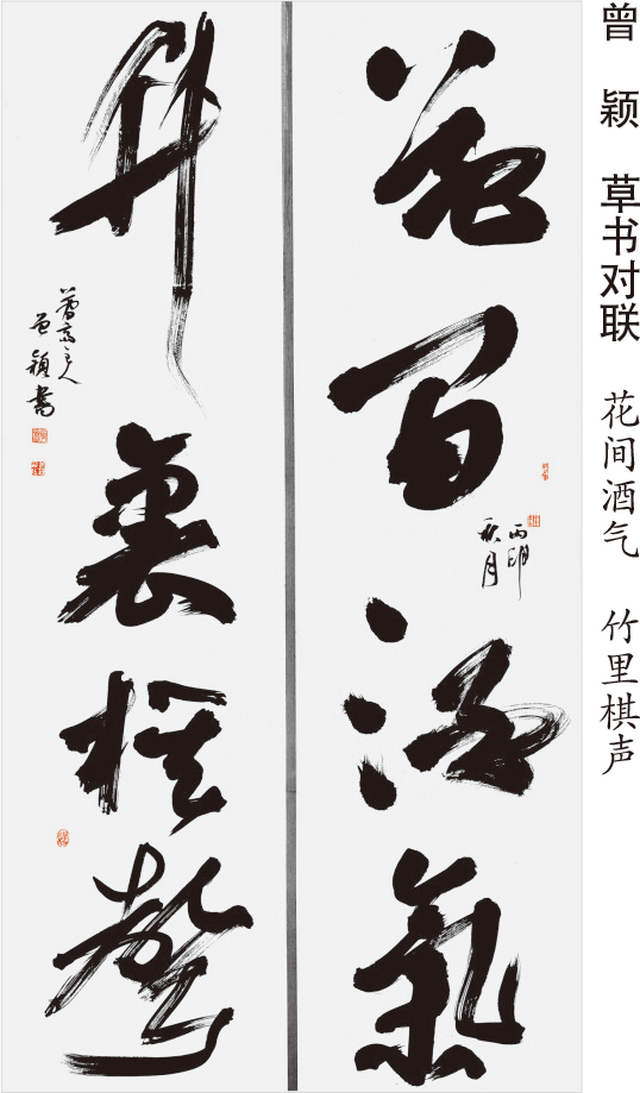 曾 颖 草书对联 花间酒气 竹里棋声
花间酒氣
丙申
秋月
竹裏棋聲
主人
曾颖書